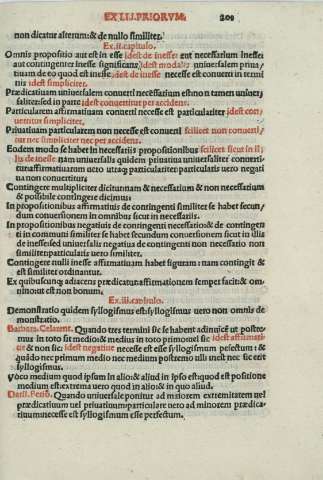 EX LI.I.PRIORVM. 209
non dicatur alterum: & de nullo similiter.
Ex.ii.capitulo.
Omnis propositio aut est in esse idest de inesse aut necessarium inessei
aut contingenter inesse significans, idest modalis: universalem priva/
tiuam de eo quod est inesse, idest de inesse necesse est conuerti in termi
nis idest simpliciter.
Prædicatiuam uniuersalem conuerti necessarium est non tamen uniuer/
saliter: sed in parte idest conuertitur per accidens.
Particularem affirmatiuam conuerti necesse est particulariter idest con/
uertitur simpliciter.
Priuatiuam particularem non necesse est conuerti scilicet non conuerti/
tur nec simpliciter nec per accidens.
Eodem modo se habet in necessariis propositionibus scilicet sicut in il/
lis de inesse nam uniuersalis quidem priuatiua uniuersaliter conuerti-
tur affirmatiuarum uero utraq; particulariter particularis uero negati
ua non conuertitur.
Contingere multipliciter dicitur nam & necessarium & non necessarium
& possibile contingere dicimus
In propositionibus affirmatiuis de contingenti similiter se habet secun/
dum conuersionem in omnibus sicut in necessariis.
In propositionibus negatiuis de contingenti necessario & de contingen
ti in communi similiter se habet secundum conuersionem sicut in illa
de inesse sed uniuersalis negatiua de contingenti non necessario non
similiter particularis uero non.
Contingere nulli inesse affirmatiuam habet figuram: nam contingit &
est similiter ordinantur.
Ex quibuscunq; adiacens prædicatur affirmationem semper facit & om
nino: ut est non bonum.
Ex.iii.capitulo.
Demonstratio quidem syllogismus est: syllogismus uero non omnis de
monstratio.
Barbara. Celarent. Quando tres termini sic se habent adinuicem ut postre
mus in toto sit medio & medius in toto primo uel sic idest affirmati
ue & non sic: idest negatiue necesse est esse syllogismum perfectum: &
quidc nec primum medio nec medium postremo ulli inest nec sic erit
syllogismus.
Voco medium quod ipsum in alio: & aliud in ipso est: quod est positione
medium est extrema uero quod in alio: & in quo aliud.
Darii. Ferio. Quando uniuersale ponitur ad maiorem extremitatem uel
prædicatiuum uel priuatiuum: particulare uero ad minorem prædica-
tiuum necesse est syllogismum esse perfectum.